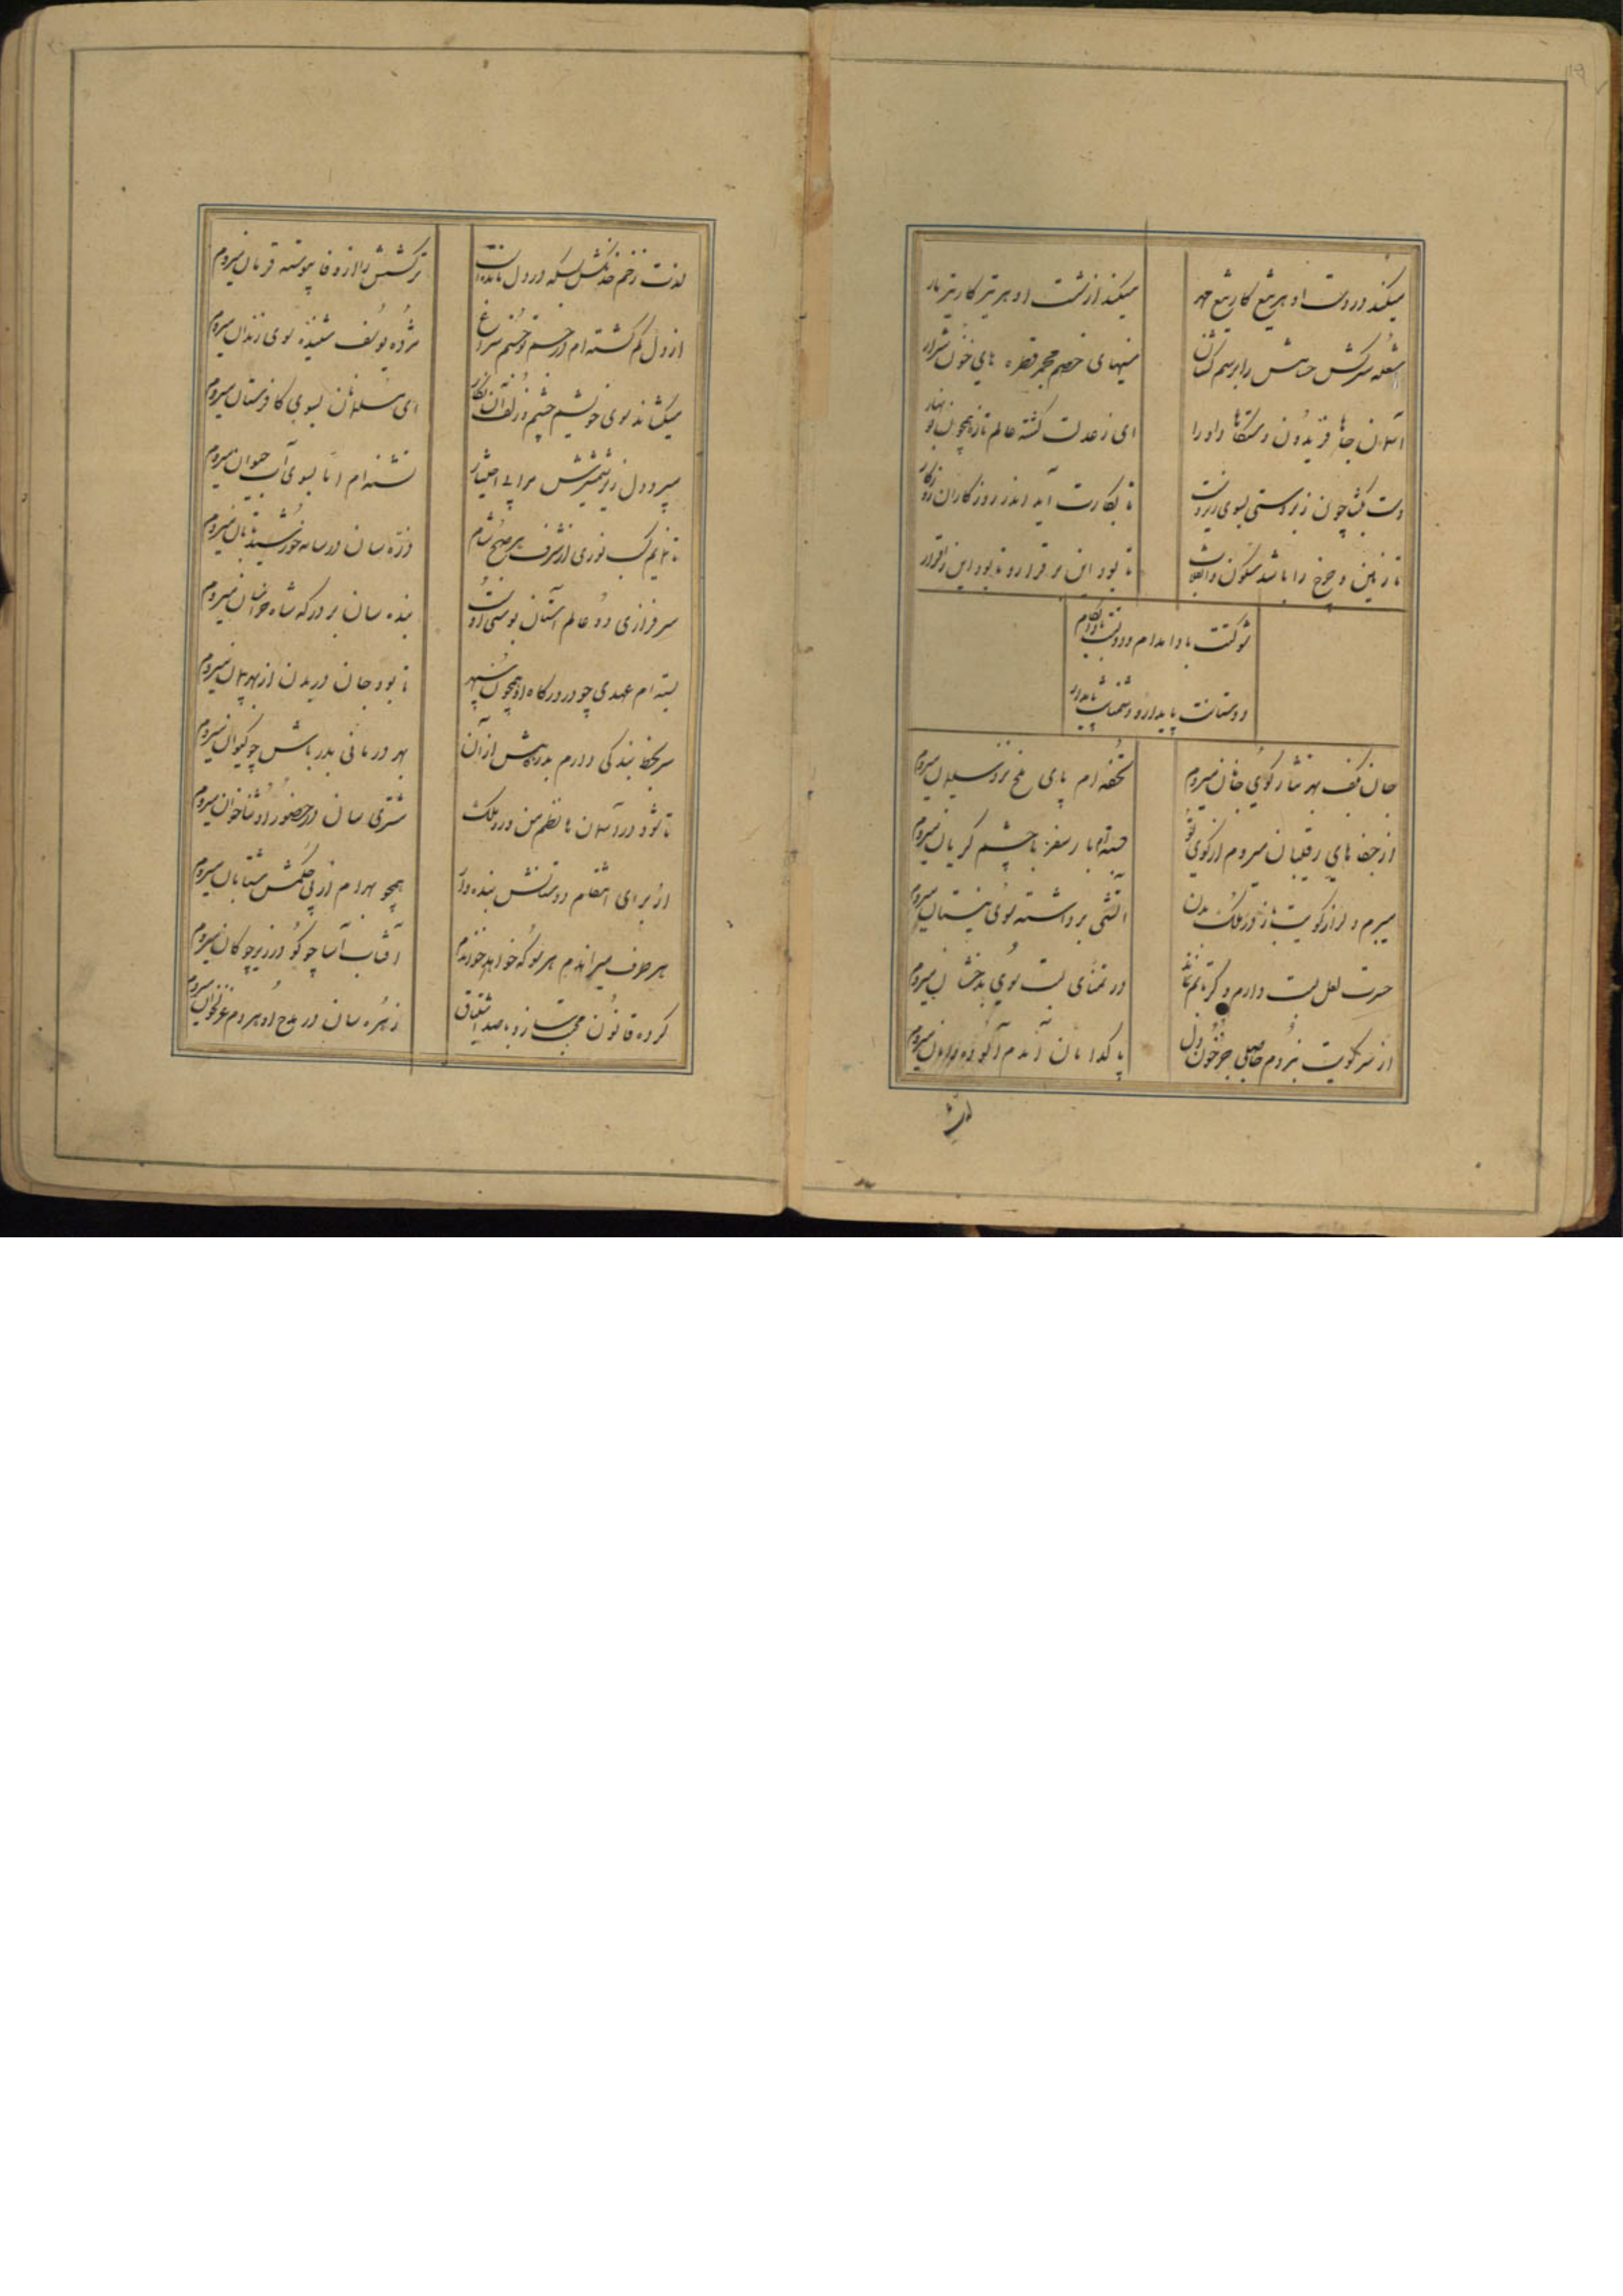 میکند در دست او هر تیغ کار تیغ مهر
میکند از شست او هر تیر کار تیر مار
شعله سرکش حسامش را برسم کشتن
سینهای خصم مجمر قطره های خون شرار
آسمان جاها فریدون دستگاها داورا
ای ز عدلت گشته عالم تازه همچون نوبهار
دست بگشا چون زبردستی بسوی زیردست
تا بکارت آید اندر روزگاران روزگار
تا زمین و چرخ را باشد سکون و انقلاب
تا بود این بر قرار و تا بود آن بیقرار
شوکتت بادا مدام و دولتت بادا بکام
دوستانت پایدار و دشمنانت پایدار
جان بکف بهر نثار کوی جانان میروم
تحفه ام پای ملخ نزد سلیمان میروم
از جفاهای رقیبان میروم از کوی تو
بسته ام بار سفر با چشم گریان میروم
میبرم دل را ز کویت باز در ملک بدن
آتشی برداشته سوی نیستان میروم
حسرت لعل لبت دارم دگر تابم نماند
در تمنای لبت سوی بدخشان میروم
از سر کویت نبردم حاصلی جز خون دل
پاکدامان آمدم آلوده دامان میروم
لذت
لذت زخم خدنگش بسکه در دل مانده است
ترکشش را از وفا پیوسته قربان میروم
از دل گم گشته ام در جستجو چشم سراغ
مژده یوسف شنیده سوی زندان میروم
میکشاند سوی خویشم چشم و زلف آن نگار
ای مسلمانان بسوی کافرستان میروم
میبرد دل زیر شمشیرش مرا بی اختیار
تشنه ام اما بسوی آب حیوان میروم
تا نمایم کسب نوری از شرف هر صبح و شام
ذره سان در سایه خورشید تابان میروم
سرفرازی دو عالم آستان بوسی اوست
بنده سان بر درگه شاه خراسان میروم
بسته ام عهدی چو در درگاه او همچون سپهر
تا بود جان در بدن از بهر پیمان میروم
سر بخط بندگی دارم بدرگاهش از آن
بهر دربانی بدربارش چو کیوان میروم
تا شود در آسمان ها نظم من ورد ملک
مشتری سان در حضور او ثناخوان میروم
از برای انتقام دوستانش بنده وار
همچو بهرام از پی حکمش شتابان میروم
هر طرف میراندم هر سو که خواهد خواندم
آفتاب آسا چو گو در زیر چوگان میروم
کرده قانون محبت ساز و با صد اشتیاق
زهره سان در مدح او هر دم غزلخوان میروم